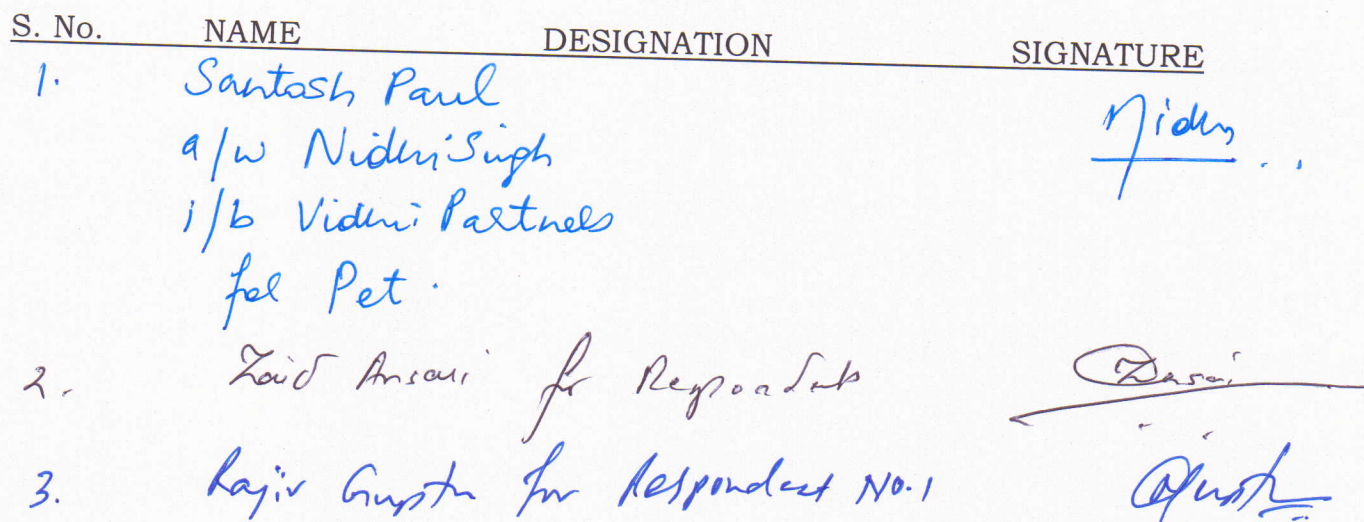 S. No. NAME DESIGNATION SIGNATURE
1. Santosh Paul Nidhi
a/w Nidhi Singh
i/b Vidhi Partners
for Pet.
2. Zaid Ansari for Respondents
3. Rajiv Gupta for Respondent No.1 Gupta